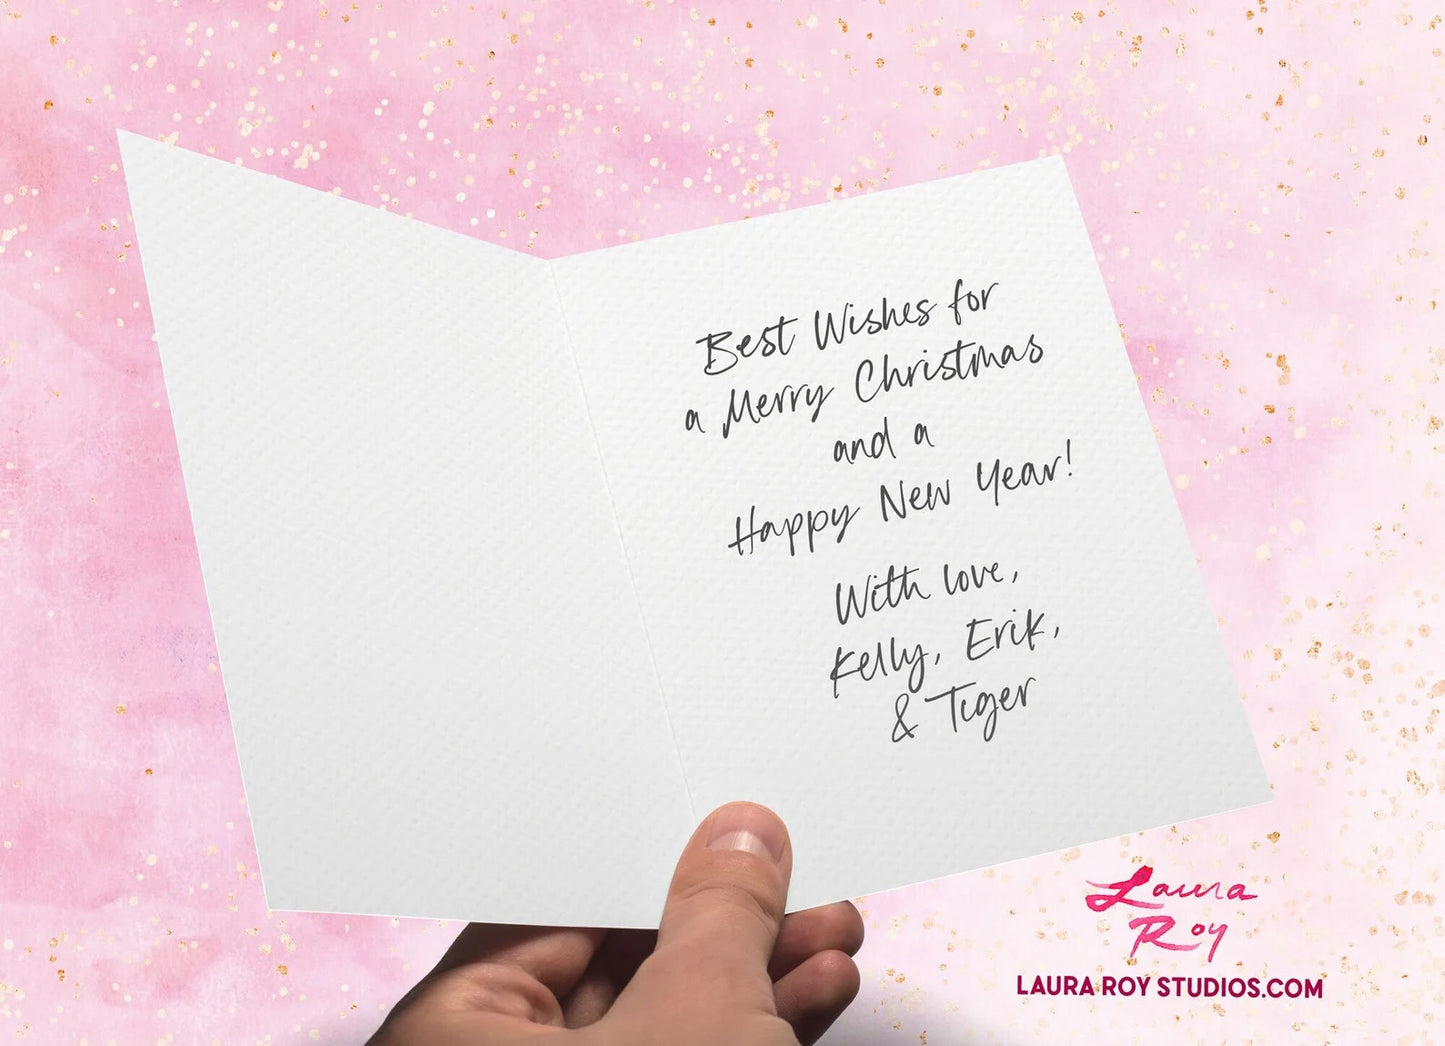 Best Wishes for
a Merry Christmas
and a
Happy New Year!
With love,
Kelly, Erik,
& Tiger
Laura
Roy
LAURA ROY STUDIOS.COM